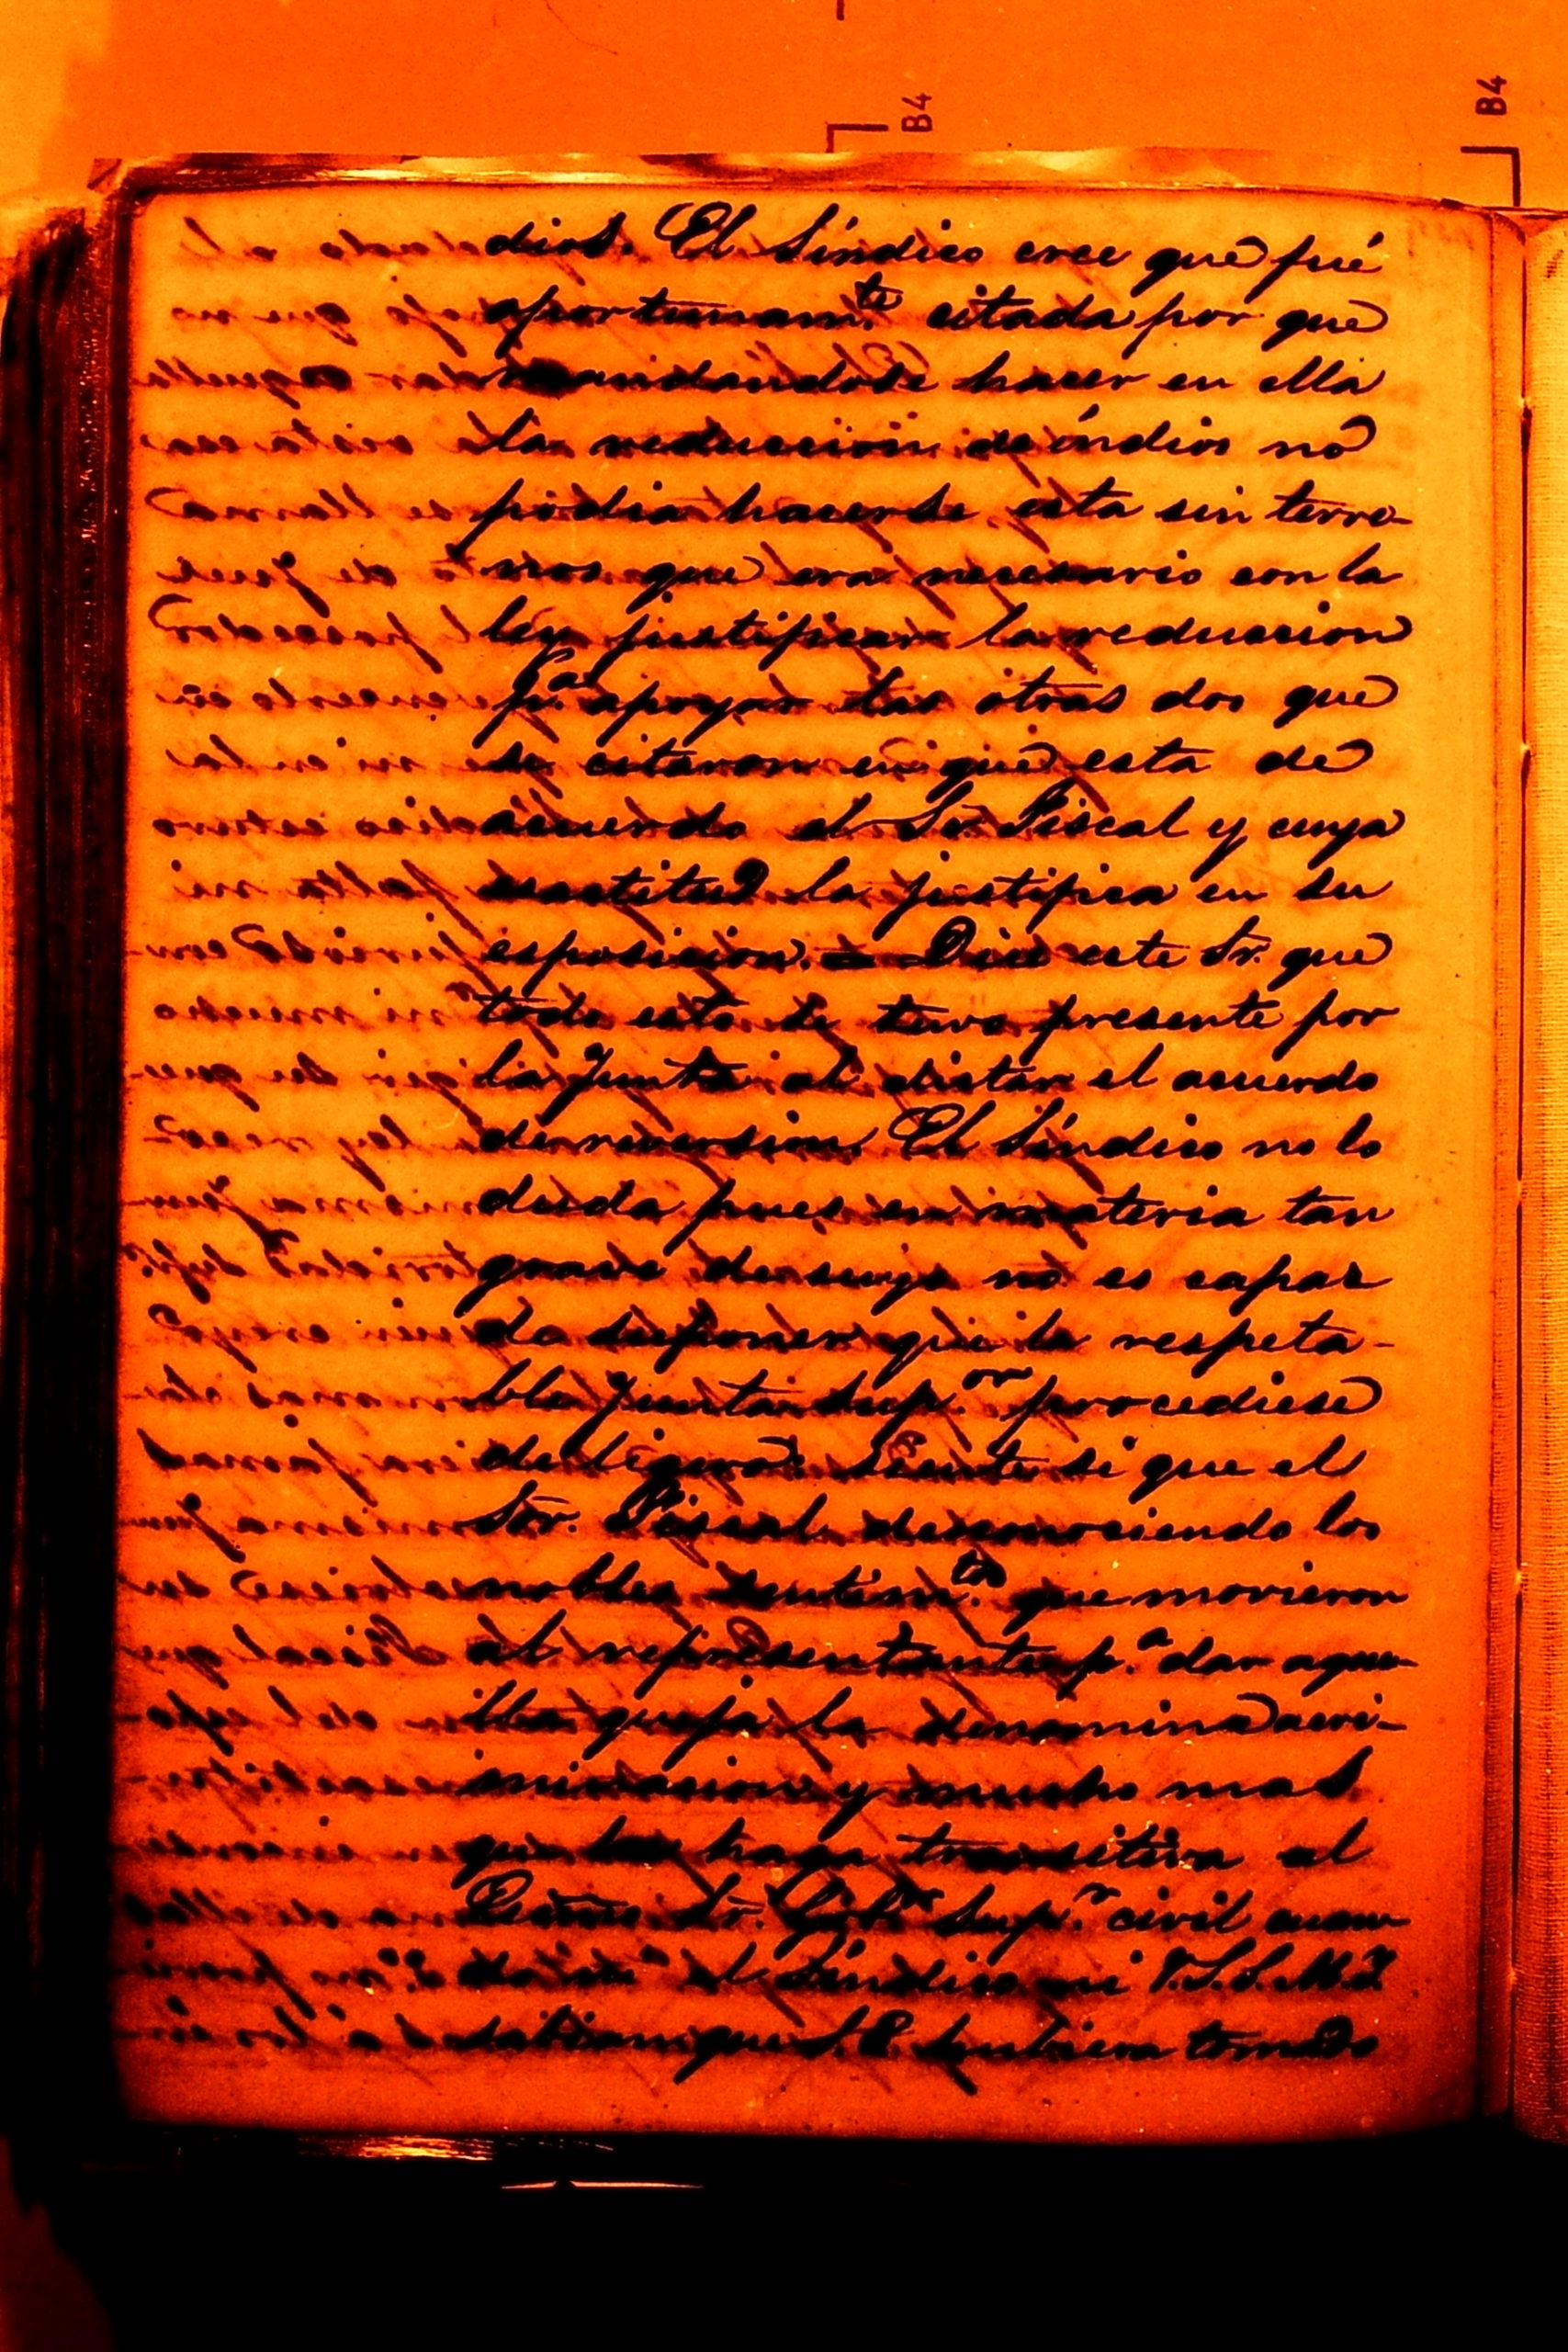 B4
B4
dios. El Síndico cree que fué
oportunam.te citada por que
mandandose hacer en ella
la reduccion de indios nó
podia hacerse esta sin terre-
nos que era necesario con la
ley justificar la reduccion
p.a apoyar las otras dos que
se citaron en que esta de
acuerdo el Sr. Fiscal y cuya
exactitud la justifica en su
esposicion. = Dice este Sr. que
todo esto se tuvo presente por
la Junta al dictar el acuerdo
de reversion. El Síndico no lo
duda pues en materia tan
grave de suyo no es capaz
de suponer que la respeta-
ble Junta Sup.or procediese
de ligero. Siente si que el
Sor. Fiscal desconociendo los
nobles sentim.tos que movieron
al representante p.a dar aque-
lla queja la denomina acri-
minacion y mucho mas
que la haga transitiva al
Exmo. Sr. Gob.or Sup.r civil cuan-
do ni el Síndico ni V.S.S.M.Y.
sabian que S.E. hubiera tomado